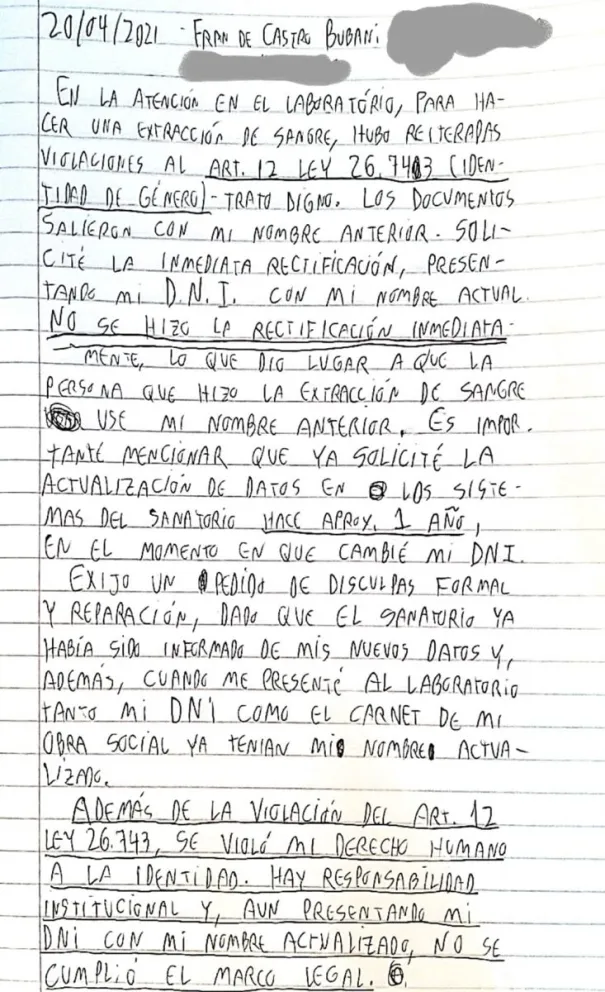 20/04/2021 - FRAN DE CASTRO BUBANI
EN LA ATENCIÓN EN EL LABORATÓRIO, PARA HA-
CER UNA EXTRACCIÓN DE SANGRE, HUBO REITERADAS
VIOLACIONES AL ART. 12 LEY 26.743 (IDEN-
TIDAD DE GÉNERO) - TRATO DIGNO. LOS DOCUMENTOS
SALIERON CON MI NOMBRE ANTERIOR. SOLI-
CITÉ LA INMEDIATA RECTIFICACIÓN, PRESEN-
TANDO MI D.N.I. CON MI NOMBRE ACTUAL.
NO SE HIZO LA RECTIFICACIÓN INMEDIATA-
MENTE, LO QUE DIO LUGAR A QUE LA
PERSONA QUE HIZO LA EXTRACCIÓN DE SANGRE
USE MI NOMBRE ANTERIOR. ES IMPOR-
TANTE MENCIONAR QUE YA SOLICITÉ LA
ACTUALIZACIÓN DE DATOS EN LOS SISTE-
MAS DEL SANATORIO HACE APROX. 1 AÑO,
EN EL MOMENTO EN QUE CAMBIÉ MI DNI.
EXIJO UN PEDIDO DE DISCULPAS FORMAL
Y REPARACIÓN, DADO QUE EL SANATORIO YA
HABÍA SIDO INFORMADO DE MIS NUEVOS DATOS Y,
ADEMÁS, CUANDO ME PRESENTÉ AL LABORATORIO
TANTO MI DNI COMO EL CARNET DE MI
OBRA SOCIAL YA TENIAN MI NOMBRE ACTUA-
LIZADO.
ADEMÁS DE LA VIOLACIÓN DEL ART. 12
LEY 26.743, SE VIOLÓ MI DERECHO HUMANO
A LA IDENTIDAD. HAY RESPONSABILIDAD
INSTITUCIONAL Y, AUN PRESENTANDO MI
DNI CON MI NOMBRE ACTUALIZADO, NO SE
CUMPLIÓ EL MARCO LEGAL.